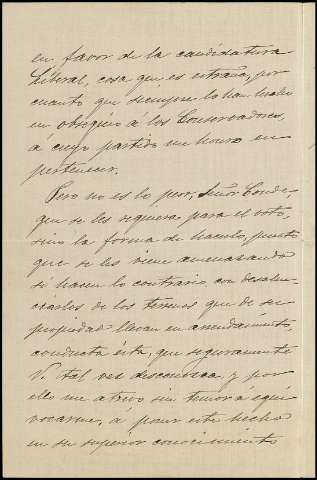 en favor de la candidatura
Liberal, cosa que es extraña, por
cuanto que siempre lo han hecho
en obsequio á los Conservadores,
á cuyo partido me honro en
pertenecer.
Pero no es lo peor, Señor Conde,
que se les requiera para el voto,
sinó la forma de hacerlo, puesto
que se les viene amenazando
si hacen lo contrario, con desahu-
ciarlos de los terrenos que de su
propiedad llevan en arrendamiento,
conducta ésta, que seguramente
V. tal vez desconozca y por
ello me atrevo sin temor á equi
vocarme, á poner este hecho
en su superior conocimiento